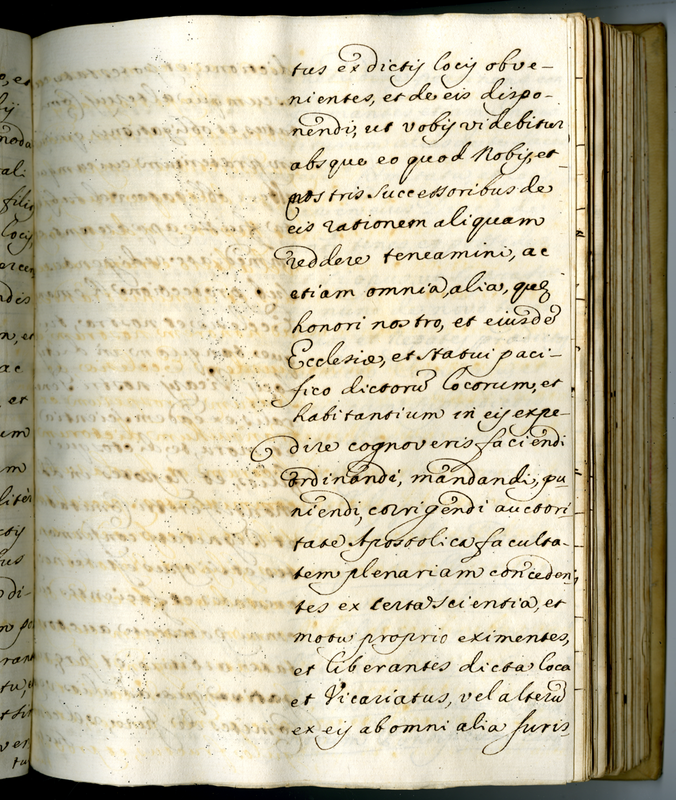 tus ex dictis locis obve-
nientes, et de eis dispo-
nendi, ut vobis videbitur
absque eo quod Nobis, et
nostris Successoribus de
eis rationem aliquam
reddere teneamini, ac
etiam omnia, alia, quę
honori nostro, et eiusdē
Ecclesiæ, et statui paci-
fico dictorū locorum, et
habitantium in eis expe-
dire cognoveris faciendi
ordinandi, mandandi, pu
niendi, corrigendi auctori
tate Apostolica faculta-
tem plenariam conceden,
tes ex certa scientia, et
motu proprio eximentes,
et liberantes dicta loca
et Vicariatus, vel alterū
ex eis ab omni alia Juris
o, et
is
noda
ali
filis
locis
ndis
n, et
ac
et
um
m
ctis
tus
di-
ver
tu